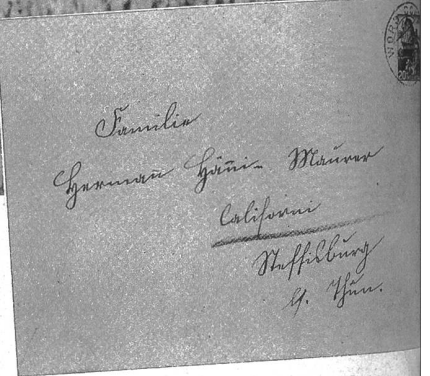 Familie
Herman̅ Hän̅i-Maurer
Californi
Steffisburg
b/. Thun.
WOR